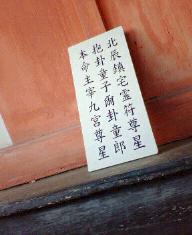 北辰鎮宅霊符尊星
抱卦童子爾卦童郎
本命主宰九宮尊星